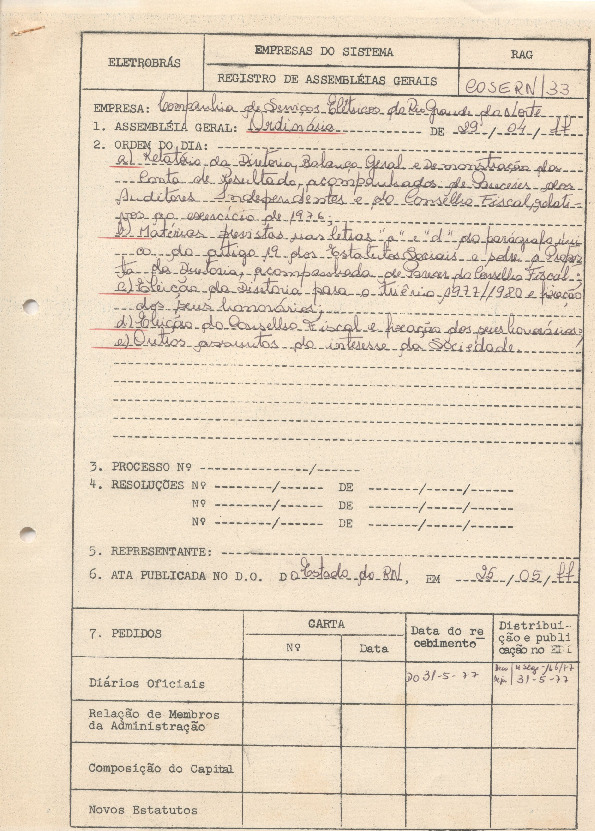 ELETROBRÁS
EMPRESAS DO SISTEMA
REGISTRO DE ASSEMBLÉIAS GERAIS
RAG
COSERN/33
EMPRESA: Companhia de Serviços Elétricos do Rio Grande do Norte
1. ASSEMBLÉIA GERAL: Ordinária DE 29/04/77
2. ORDEM DO DIA:
a) Relatório da Diretoria, Balanço Geral e Demonstração da
Conta de Resultado, acompanhados de Pareceres dos
Auditores Independentes e do Conselho Fiscal, relati-
vos ao exercício de 1976;
b) Matérias previstas nas letras "a" e "d" do parágrafo úni-
co do artigo 19 dos Estatutos Sociais e sobre a Propos-
ta da Diretoria, acompanhada de Parecer do Conselho Fiscal;
c) Eleição da Diretoria para o triênio 1977/1980 e fixação
dos seus honorários;
d) Eleição do Conselho Fiscal e fixação dos seus honorários;
e) Outros assuntos do interesse da Sociedade.
3. PROCESSO Nº ---------------/------
4. RESOLUÇÕES Nº --------/------ DE -------/-----/-----
Nº --------/------ DE -------/-----/-----
Nº --------/------ DE -------/-----/-----
5. REPRESENTANTE:
6. ATA PUBLICADA NO D.O. DO Estado do RN, EM 25/05/77
7. PEDIDOS
CARTA
Nº
Data
Data do re
cebimento
Distribui-
ção e publi
cação no
Diários Oficiais
DO 31-5-77
31-5-77
Relação de Membros
da Administração
Composição do Capital
Novos Estatutos